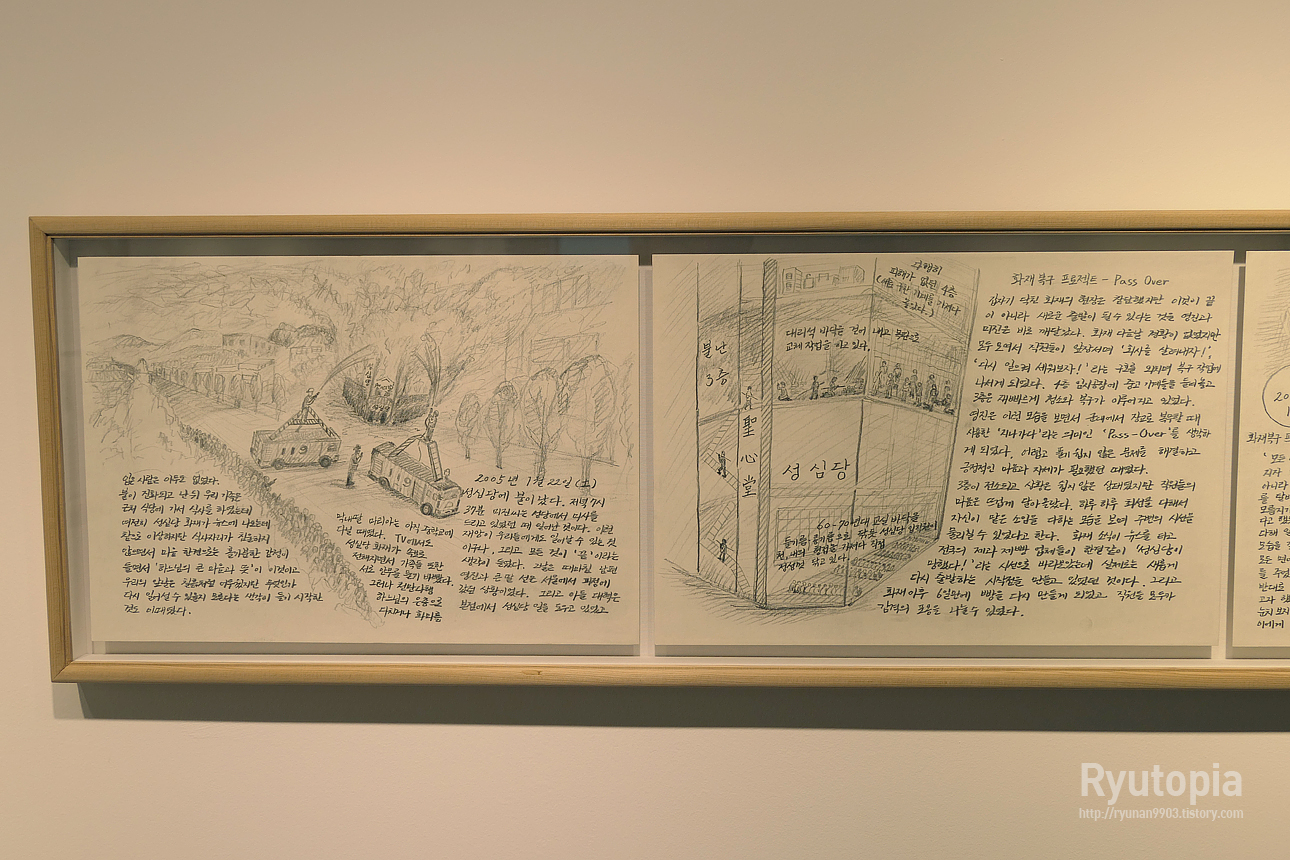 2005년 1월 22일 (土)
성심당에 불이 났다. 저녁 7시
37분 미진씨는 성당에서 미사를
드리고 있었던 때 일어난 것이다. 이런
재앙이 우리들에게도 일어날 수 있는 것
이구나. 그리고 모든 것이 '끝'이라는
생각이 들었다. 그날은 때마침 남편
영진과 큰 딸 선은 서울에서 회정에
갔던 상황이었다. 그리고 아들 대혁은
본점에서 성심당 일을 도우고 있었고
막내딸 마리아는 아직 중학교에
다닐 때였다. TV에서도
성심당 화재가 속보로
전해지면서 가족들 또한
서로 안부를 묻기 바빴다.
그러나 천만다행
하느님의 은총으로
다치거나 화마를
입은 사람은 아무도 없었다.
불이 진화되고 난 뒤 우리 가족은
근처 식당에 가서 식사를 하였는데
여전히 성심당 화재가 뉴스에 나오는데
참으로 이상하지만 식사자리가 침울하지
않으면서 마음 한켠으로는 홀가분한 감정이
들면서 '하느님의 큰 마음과 뜻'이 이것이고
우리의 앞날은 캄캄하게 어두웠지만 무언가
다시 일어설 수 있을지 모른다는 생각이 들기 시작한
것도 이때였다.
다행히
피해가 없던 4층
불난
3층
대리석 바닥을 걷어 내고 부분으로
교체 작업을 하고 있다.
聖心堂
성심당
60-70년대 교실 바닥을
직접 닦고 있다
화재복구 프로젝트 - Pass Over
갑자기 닥친 화재의 현장은 참담했지만 이것이 끝
이 아니라 새로운 출발이 될 수 있다는 것을 영진과
미진은 바로 깨달았다. 화재 다음날 정황이 없었지만
모두 모여서 직원들이 앞장서며 '회사를 살려내자!',
'다시 일으켜 세워보자!'라는 구호를 외치며 복구 작업에
나서게 되었다. 4층 임시공장에 중고 기계들을 들여놓고
3층은 재빠르게 청소와 복구가 이루어지고 있었다.
영진은 이런 모습을 보면서 군대에서 장교로 복무할 때
사용한 '지나가다'라는 의미인 'Pass-Over'를 생각하
게 되었다. 어렵고 풀기 쉽지 않은 문제를 해결하고
긍정적인 마음과 자세가 필요했던 때였다.
3층이 전소되고 상황은 쉽지 않은 상태였지만 직원들의
마음은 뜨겁게 달아올랐다. 하루하루 최선을 다해서
자신이 맡은 소임을 다하는 모습을 보며 주변의 시선을
돌리실 수 있었다고 한다. 화재 소식이 뉴스를 타고
전국의 제과 제빵 업체들이 한결같이 '성심당이
망했다!'라는 시선으로 바라보았는데 실제로는 새롭게
다시 출발하는 시작점을 만들고 있었던 것이다. 그리고
화재 이후 6일만에 빵을 다시 만들게 되었고 직원들 모두가
감격의 포옹을 나눌 수 있었다.
Ryutopia
http://ryunan9903.tistory.com